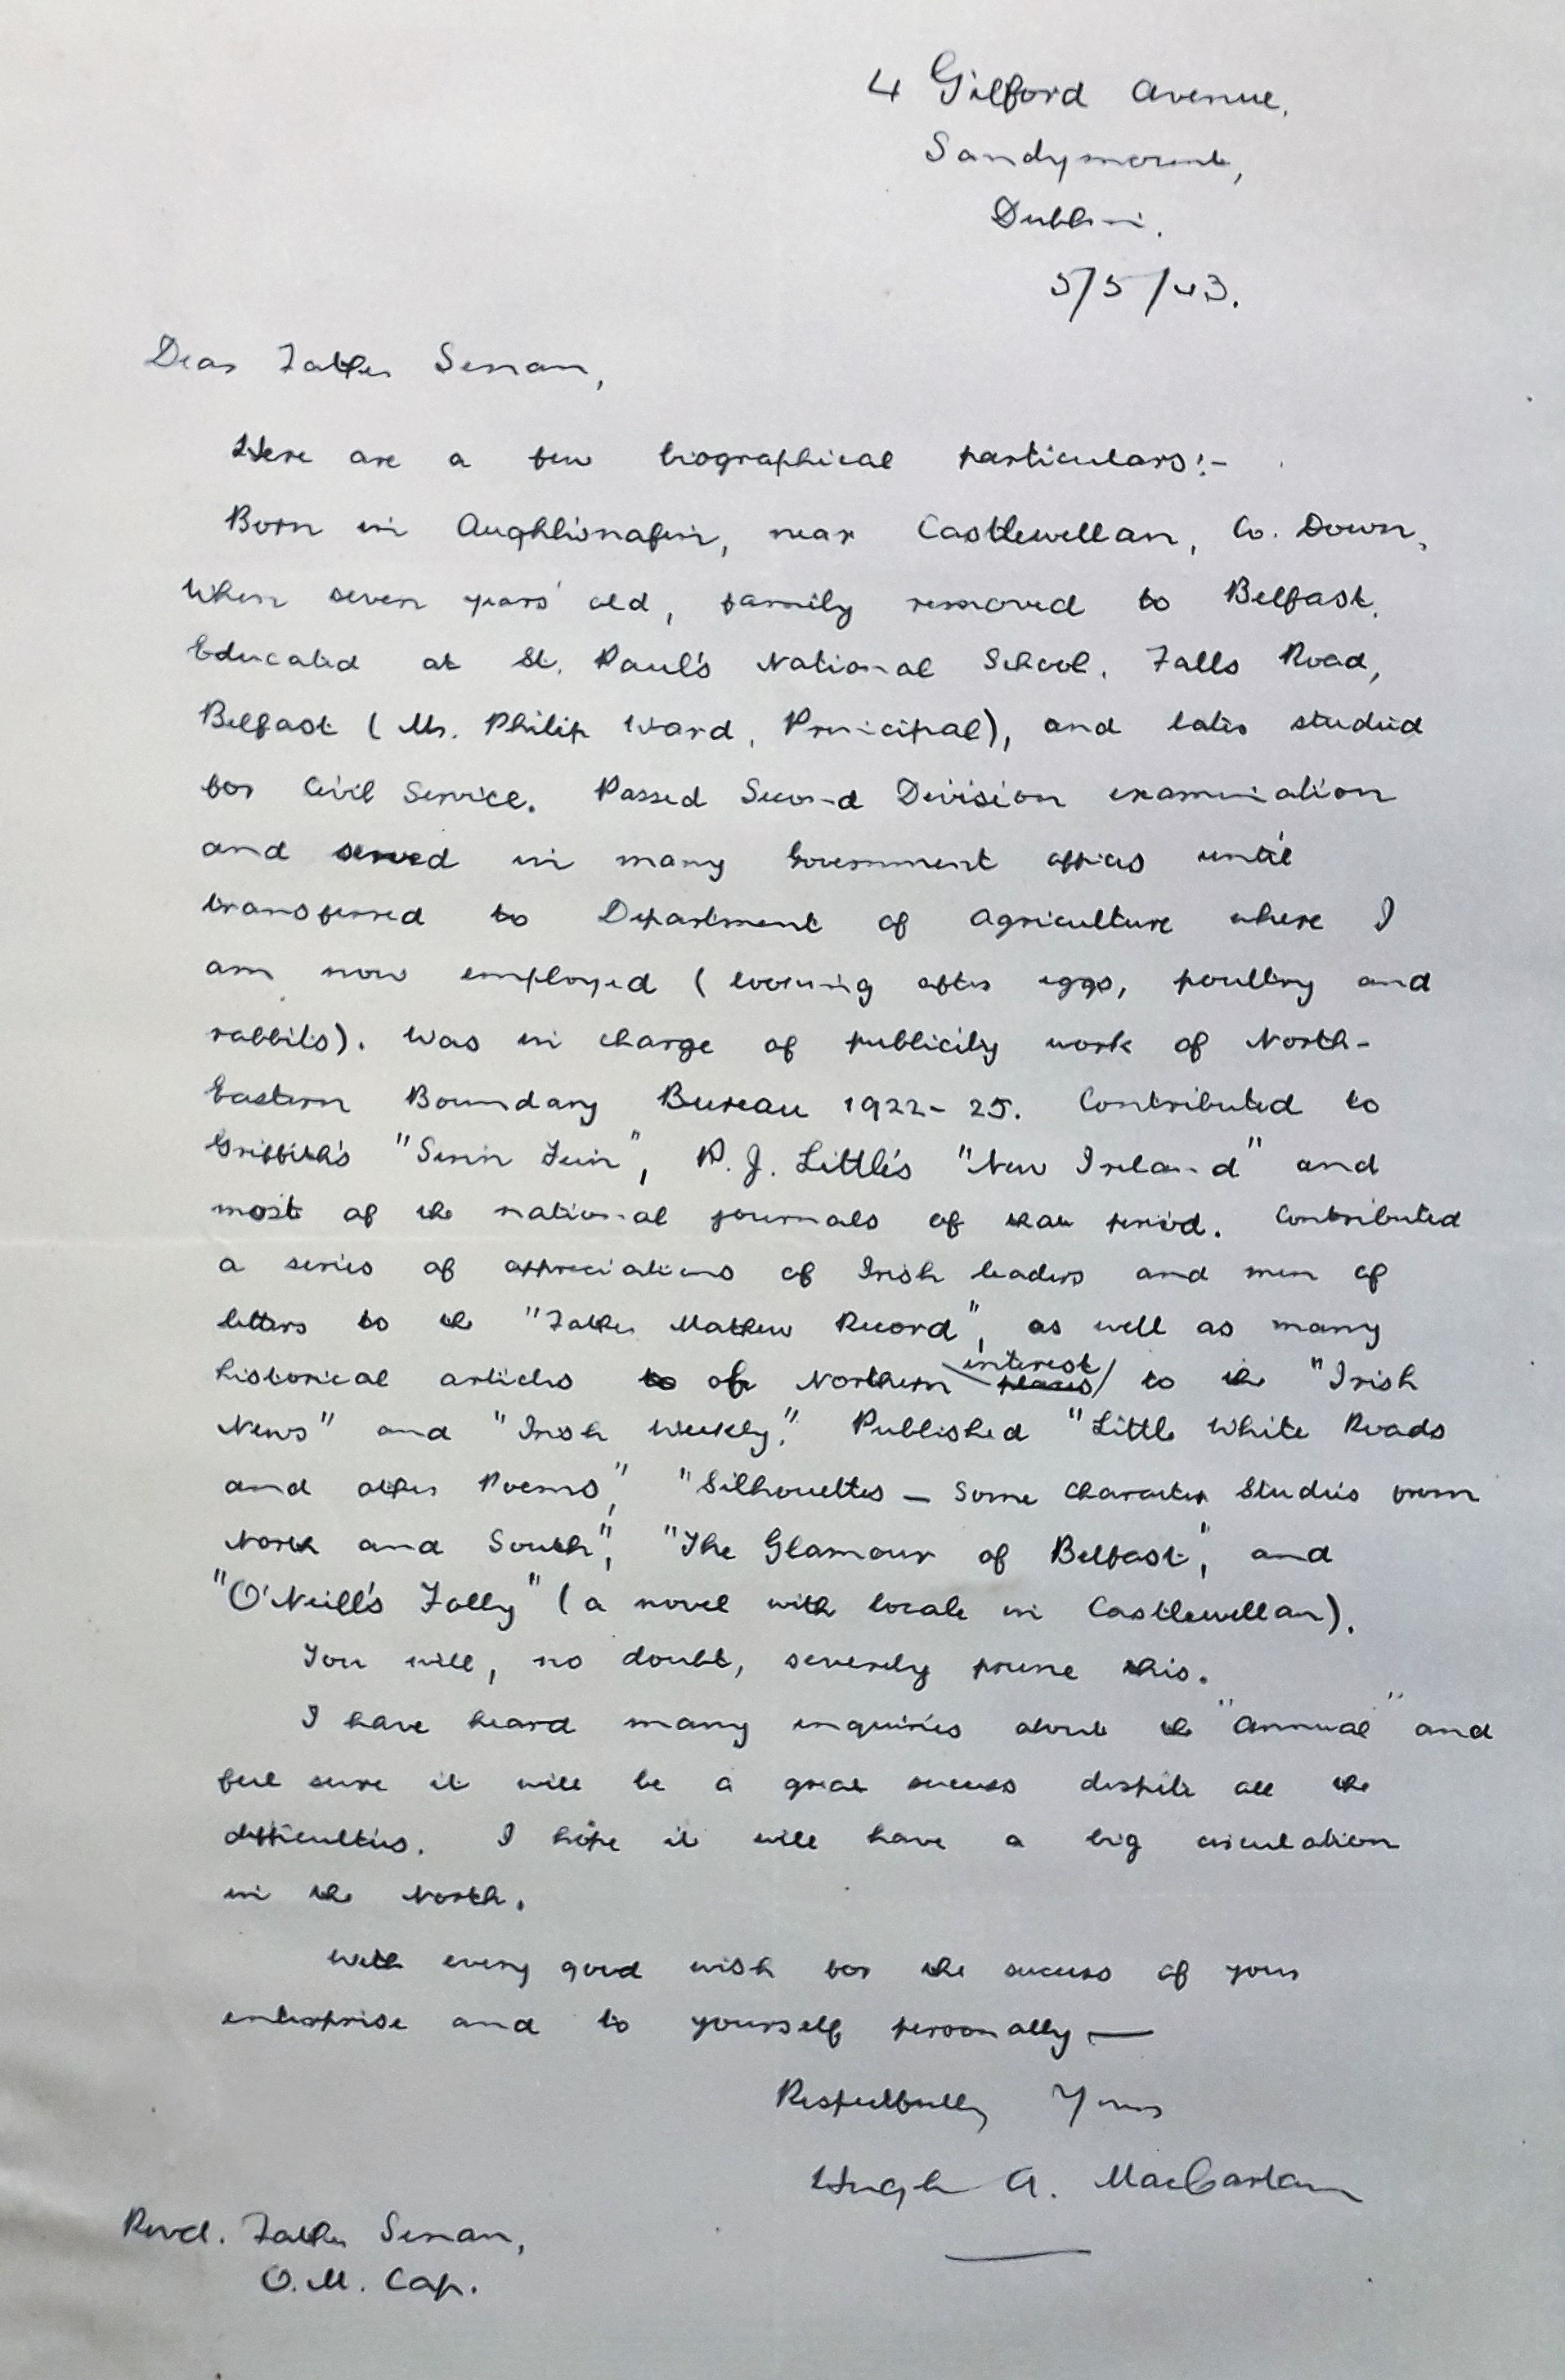 4 Gilford Avenue,
Sandymount,
Dublin.
5/5/43.
Dear Father Senan,
Here are a few biographical particulars:-
Born in Aughlisnafin, near Castlewellan, Co. Down,
When seven years' old, family removed to Belfast.
Educated at St. Paul's National School, Falls Road,
Belfast (Mr. Philip Ward, Principal), and later studied
for Civil Service. Passed Second Division examination
and served in many Government offices until
transferred to Department of Agriculture where I
am now employed (looking after eggs, poultry and
rabbits). Was in charge of publicity work of North-
Eastern Boundary Bureau 1922-25. Contributed to
Griffith's "Sinn Fein", P. J. Little's "New Ireland" and
most of the national journals of that period. Contributed
a series of appreciations of Irish leaders and men of
letters to the "Father Mathew Record", as well as many
historical articles to of Northern interest places to the "Irish
News" and "Irish Weekly." Published "Little White Roads
and other Poems", "Silhouettes — Some Character Studies from
North and South", "The Glamour of Belfast", and
"O'Neill's Folly" (a novel with locale in Castlewellan).
You will, no doubt, severely prune this.
I have heard many inquiries about the "Annual" and
feel sure it will be a great success despite all the
difficulties. I hope it will have a big circulation
in the North.
With every good wish for the success of your
enterprise and to yourself personally —
Respectfully Yours
Hugh A. MacCartan
Revd. Father Senan,
O. M. Cap.